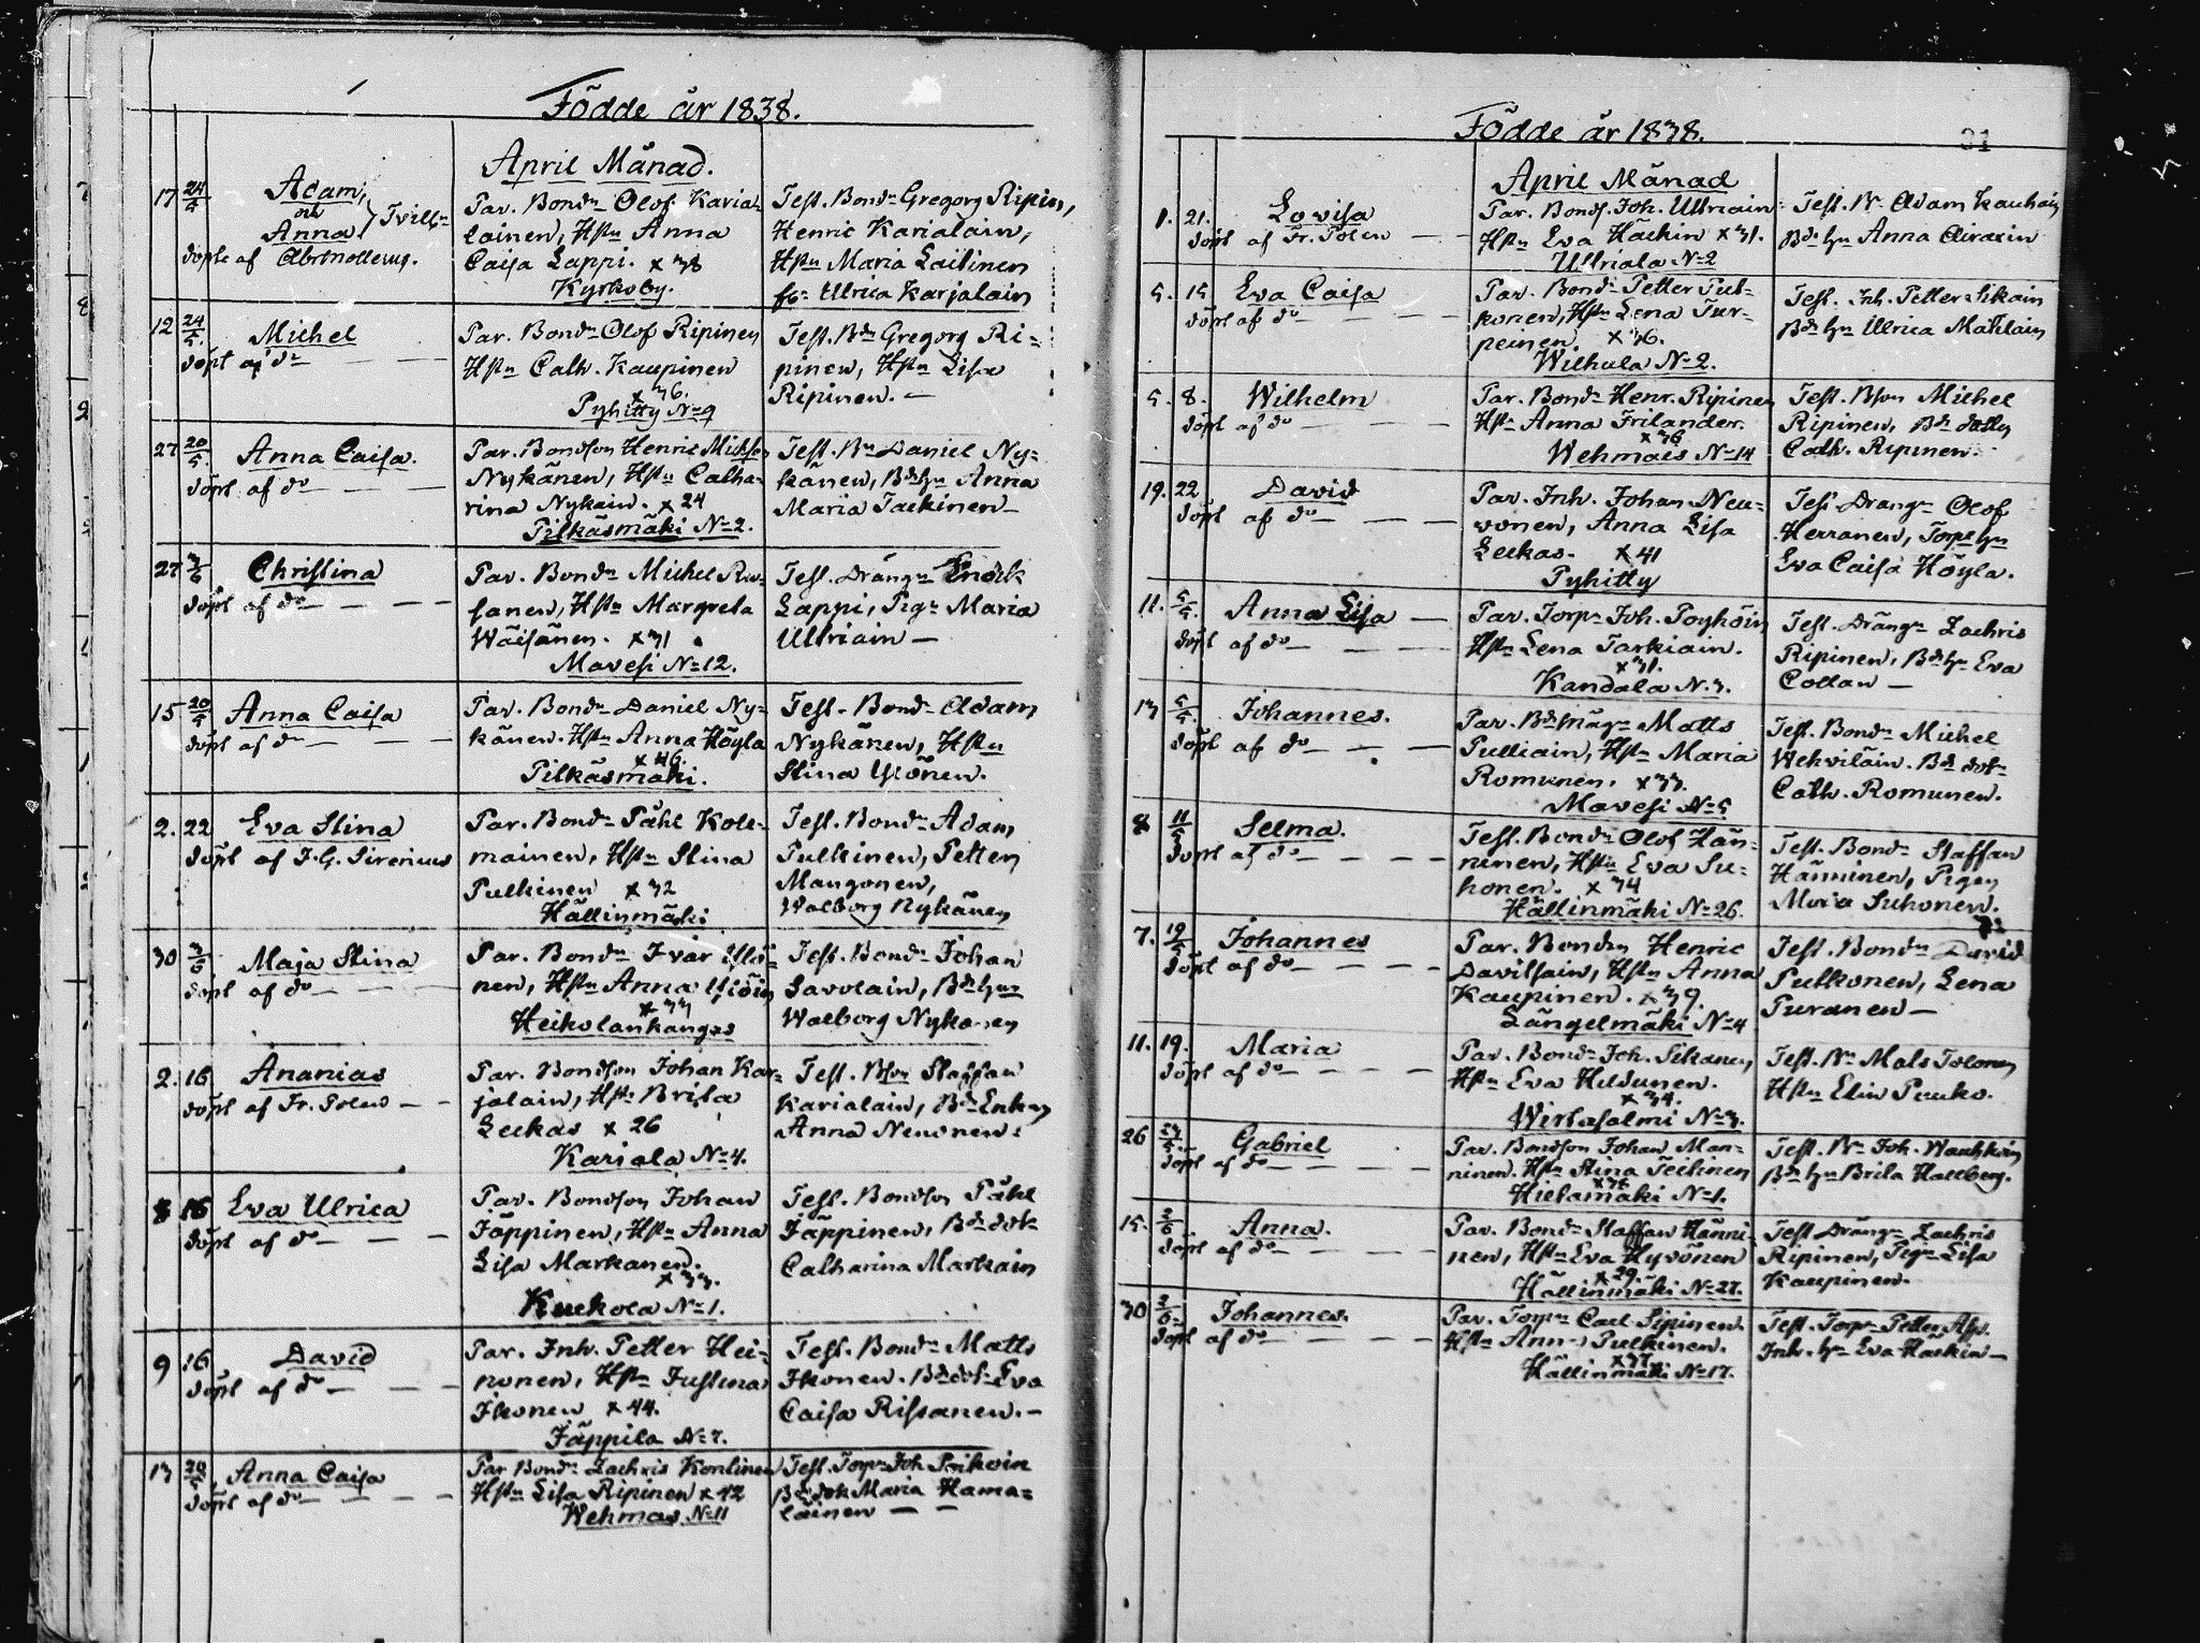 Födde år 1838.
April Månad.
17 24/5 Adam, och Anna Tvill:
döpte af Abrenollenus.
Par. Bondn Olof Karia=
lainen, Hstu Anna
Caisa Lappi. x 38
Kyrkoby.
Test. Bondn Gregorg Ripin,
Henric Karialain,
Hstu Maria Laitinen
fr. Ulrica Karjalain
12 24/5 Michel
döpt af do
Par. Bondn Olof Ripinen
Hstu Cath. Kaupinen
x 36.
Pyhitty No 9
Test. Bdn Gregorg Ri=
pinen, Hstu Lisa
Ripinen. —
27 20/5 Anna Caisa.
döpt af do
Par. Bondson Henric
Nykänen, Hstu Catha=
rina Nykain. x 24
Pilkäsmäki No 2.
Test. Bn Daniel Ny=
känen, Bdhu Anna
Maria Tackinen —
27 3/6 Christina
döpt af do
Par. Bondn Michel
sanen, Hstu Margreta
Wäisänen. x 31
Mavesi No 12.
Test. Drängn Enock
Lappi, Pign Maria
Ultriain —
15 20/5 Anna Caisa
döpt af do
Par. Bondn Daniel Ny=
känen. Hstu Anna Höyla
x 46.
Pilkäsmäki.
Test. Bond. Adam
Nykänen, Hstu
Stina Ylönen.
2. 22 Eva Stina
döpt af J. G. Sirenius
Par. Bondn Påhl Kole=
mainen, Hstu Stina
Pulkinen x 32
Hällinmäki
Test. Bondn Adam
Pulkinen, Petter
Mangonen,
Walborg Nykänen
30 3/6 Maja Stina
döpt af do
Par. Bondn Ivar Ylö=
nen, Hstu Anna
x 33
Heikolankangas
Test. Bondn Johan
Savolain, Bdhu
Walborg Nykänen
2. 16 Ananias
döpt af Fr. Polen
Par. Bondson Johan Kar=
jalain, Hstu Brita
Leekas x 26
Kariala No 4.
Test. Bson Staffan
Karialain, Bd Enkan
Anna Neuonen.
8 16 Eva Ulrica
döpt af do
Par. Bondson Johan
Jäppinen, Hstu Anna
Lisa Markanen.
x 33.
Kuckola No 1.
Test. Bondson Påhl
Jäppinen, Bd dotr
Catharina Markain
9 16 David
döpt af do
Par. Inh. Petter Hei=
nonen, Hstu Justina
Ikonen x 44.
Jäppila No 7.
Test. Bondn Matts
Ikonen. Bd dotr Eva
Caisa Rissanen. —
13 20/5 Anna Caisa
döpt af do
Par Bondn Zachris Kontinen
Hstu Lisa Ripinen x 42
Wehmas No 11
Test. Torpn Joh
Bd dotr Maria Hama=
lainen — —
Födde år 1838.
31
April Månad
1. 21. Lovisa
döpt af Fr. Polen
Par. Bonds. Joh. Ultriain
Hstu Eva Hackin x 31.
Ultriala No 2
Test. Bn Adam Kauhain
Bdhu Anna Airaxin
5. 15 Eva Caisa
döpt af do
Par. Bondn Petter Pul=
konen, Hstu Lena Tur=
peinen. x 36.
Wilhula No 2.
Test. Inh. Petter Sikain
Bdhu Ulrica Matilain
5. 8. Wilhelm
döpt af do
Par. Bondn Henr. Ripinen
Hstu Anna Frilander.
x 36
Wehmais No 14
Test. Bson Michel
Ripinen, Bd dottn
Cath. Ripinen.
19. 22 David
döpt af do
Par. Inh. Johan Neu=
vonen, Anna Lisa
Leekas. x 41
Pyhitty
Test Drangn Olof
Herranen, Torpshu
Eva Caisa Höyla.
11. 5/5 Anna Lisa —
döpt af do
Par. Torpn Joh. Poyhöin
Hstu Lena Tarkiain.
x 31.
Kandala No 3.
Test. Drängn Zachris
Ripinen, Bdhu Eva
Collan —
13 5/5 Johannes.
döpt af do
Par. Bdmågn Matts
Pulliain, Hstu Maria
Romunen. x 33.
Mavesi No 5
Test. Bondn Michel
Wehviläin. Bd dotr
Cath. Romunen.
8 11/5 Selma.
döpt af do
Test. Bondn Olof Hän=
ninen, Hstu Eva Su=
honen. x 34
Hällinmäki No 26.
Test. Bondn Staffan
Hänninen, Pigan
Maria Suhonen.
7. 19/5 Johannes
döpt af do
Par. Bondn Henric
Davitsain, Hstu Anna
Kaupinen. x 39.
Längelmäki No 4
Test. Bondn David
Pulkonen, Lena
Puranen —
11. 19. Maria
döpt af do
Par. Bondn Joh. Sikanen
Hstu Eva Hildunen.
x 34.
Wirtasalmi No 3.
Test. Bn Mats Tolonen
Hstu Elin Puuko.
26 27/5 Gabriel
döpt af do
Par. Bondson Johan Man=
ninen. Hstu Stina Teitinen
Hietamäki No 1.
Test. Bn Joh. Wauhkoin
Bdhu Brita Hallberg.
15. 3/6 Anna.
döpt af do
Par. Bondn Staffan Hänni=
nen, Hstu Eva Hyvönen
x 29.
Hällinmäki No 27.
Test Drängn Zachris
Ripinen, Pign Lisa
Kaupinen.
30 3/6 Johannes.
döpt af do
Par. Torpn Carl Sipinen.
Hstu Anna Pulkinen.
x 37.
Hällinmäki No 17.
Test. Torpr Petter
Inh. hu Eva Hackin —